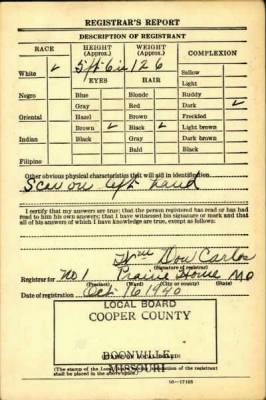 REGISTRAR'S REPORT
DESCRIPTION OF REGISTRANT
RACE HEIGHT (Approx.) WEIGHT (Approx.) COMPLEXION
White ✓ 5ft 6in 126 Sallow
EYES HAIR Light
Negro Blue Blonde Ruddy
Gray Red Dark ✓
Oriental Hazel Brown Freckled
Brown ✓ Black ✓ Light brown
Indian Black Gray Dark brown
Bald Black
Filipino
Other obvious physical characteristics that will aid in identification
Scar on left hand
I certify that my answers are true; that the person registered has read or has had
read to him his own answers; that I have witnessed his signature or mark and that
all of his answers of which I have knowledge are true, except as follows:
Wm Don Carlos
(Signature of registrar)
Registrar for No 1 Prairie Home Mo
(Precinct) (Ward) (City or county) (State)
Date of registration Oct 16 1940
LOCAL BOARD
COOPER COUNTY
BOONVILLE
MISSOURI
(The stamp of the Local Board having jurisdiction of the registrant
shall be placed in the above space.)
16—17105